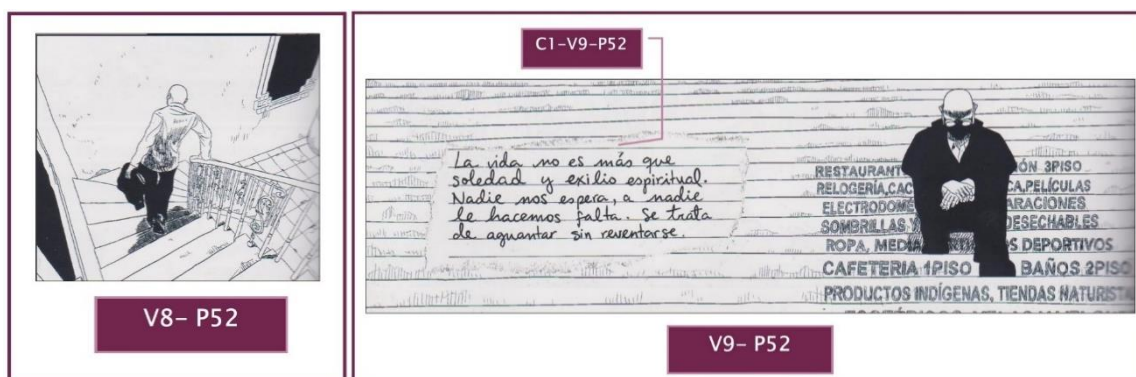 V8- P52
C1-V9-P52
La vida no es más que
soledad y exilio espiritual.
Nadie nos espera, a nadie
le hacemos falta. Se trata
de aguantar sin reventarse.
RESTAURANT ÓN 3PISO
RELOGERÍA,CAC CA,PELÍCULAS
ELECTRODOM ARACIONES
SOMBRILLAS Y DESECHABLES
ROPA, MEDIA OS DEPORTIVOS
CAFETERIA 1PISO BAÑOS 2PISO
PRODUCTOS INDÍGENAS, TIENDAS NATURISTA
V9- P52